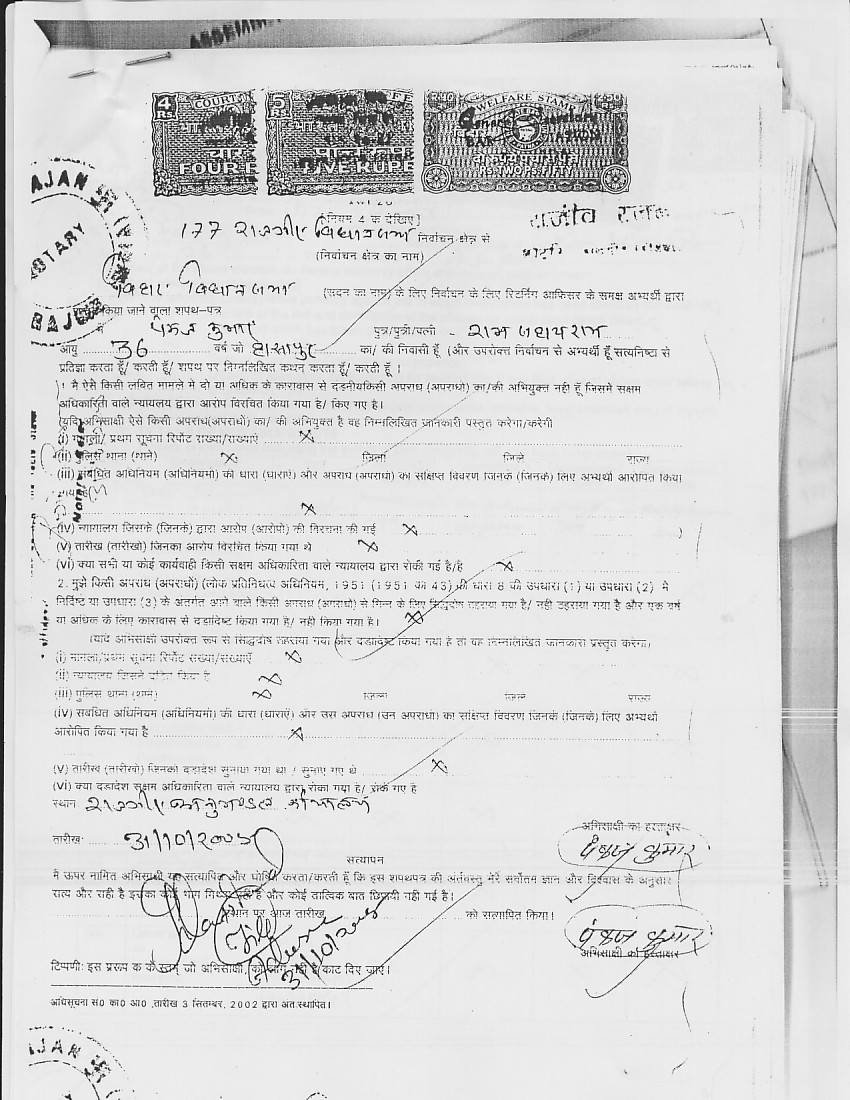 4 Rs.
COURT
FOUR
5 Rs.
WELFARE STAMP
RS.TWO PS.FIFTY
[नियम 4 क देखिए]
177 राजगीर विधानसभा निर्वाचन क्षेत्र से
(निर्वाचन क्षेत्र का नाम)
बिहार विधानसभा (सदन का नाम) के लिए निर्वाचन के लिए रिटर्निंग आफिसर के समक्ष अभ्यर्थी द्वारा
किया जाने वाला शपथ–पत्र
मैं पंकज कुमार पुत्र/पुत्री/पत्नी - राम
आयु 36 वर्ष जो हासापुर का/ की निवासी हूँ (और उपरोक्त निर्वाचन से अभ्यर्थी हूँ सत्यनिष्टा से
प्रतिज्ञा करता हूँ/ करती हूँ/ शपथ पर निम्नलिखित कथन करता हूँ/ करती हूँ।
1 मै ऐसे किसी लबित मामले मे दो या अधिक के कारावास से दडनीयकिसी अपराध (अपराधो) का/की अभियुक्त नही हूँ जिसमे सक्षम
अधिकारिता वाले न्यायालय द्वारा आरोप विरचित किया गया है/ किए गए है।
(यदि अभिसाक्षी ऐसे किसी अपराध(अपराधों) का/ की अभियुक्त है वह निम्नलिखित जानकारी प्रस्तुत करेगा/करेगी
(i) मामला/ प्रथम सूचना रिपोर्ट सख्या/सख्याएं X
(ii) पुलिस थाना (थाने) X जिला जिले राज्य
(iii) सबधित अधिनियम (अधिनियमो) की धारा (धाराएं) और अपराध (अपराधो) का सक्षिप्त विवरण जिनके (जिनके) लिए अभ्यर्थी आरोपित किया
X
(iv) न्यायालय जिसके (जिनके) द्वारा आरोप (आरोपो) की विरचना की गई X )
(v) तारीख (तारीखो) जिनका आरोप विरचित किया गया था X
(vi) क्या सभी या कोई कार्यवाही किसी सक्षम अधिकारिता वाले न्यायालय द्वारा रोकी गई है/है X
2. मुझे किसी अपराध (अपराधों) (लोक प्रतिनिधत्व अधिनियम, 1951 (1951 का 43) की धारा 8 की उपधारा (1) या उपधारा (2) मे
निर्दिष्ट या उपधारा (3) के अंतर्गत आने वाले किसी अपराध (अपराधों) से भिन्न के लिए सिद्धदोष ठहराया गया है/ नही ठहराया गया है और एक वर्ष
या अधिक के लिए कारावास से दडादिष्ट किया गया है/ नही किया गया है। X
(यदि अभिसाक्षी उपरोक्त रूप से सिद्धदोष ठहराया गया और दडादिष्ट किया गया है तो वह निम्नलिखित जानकारी प्रस्तुत करेगा)
(i) मामला/प्रथम सूचना रिपोर्ट सख्या/सख्याएं X
(ii) न्यायालय जिसने दंडित किया है X
(iii) पुलिस थाना (थाने) X जिला जिले राज्य
(iv) सबधित अधिनियम (अधिनियमो) की धारा (धाराएं) और उस अपराध (उन अपराधो) का सक्षिप्त विवरण जिनके (जिनके) लिए अभ्यर्थी
आरोपित किया गया है X
(v) तारीख (तारीखो) जिनको दडादेश सुनाया गया था / सुनाए गए थे X
(vi) क्या दडादेश सक्षम अधिकारिता वाले न्यायालय द्वारा रोका गया है/ रोके गए है
स्थान राजगीर
तारीख: 31/10/2005
अभिसाक्षी का हस्ताक्षर
पंकज कुमार
सत्यापन
मै ऊपर नामित अभिसाक्षी यह सत्यापित और घोषित करता/करती हूँ कि इस शपथपत्र की अंर्तवस्तु मेरे सर्वोतम ज्ञान और विश्वास के अनुसार
सत्य और सही है इसका कोई भाग मिथ्या नही है और कोई तात्विक बात छिपायी नही गई है।
स्थान पर आज तारीख को सत्यापित किया।
पंकज कुमार
अभिसाक्षी का हस्ताक्षर
31/10/2005
टिप्पणी: इस प्ररूप क के स्तम्भ जो अभिसाक्षी को लागू नही है काट दिए जाएं।
अधिसूचना सं0 का0 आ0 ,तारीख 3 सितम्बर, 2002 द्वारा अंत:स्थापित।
NOTARY